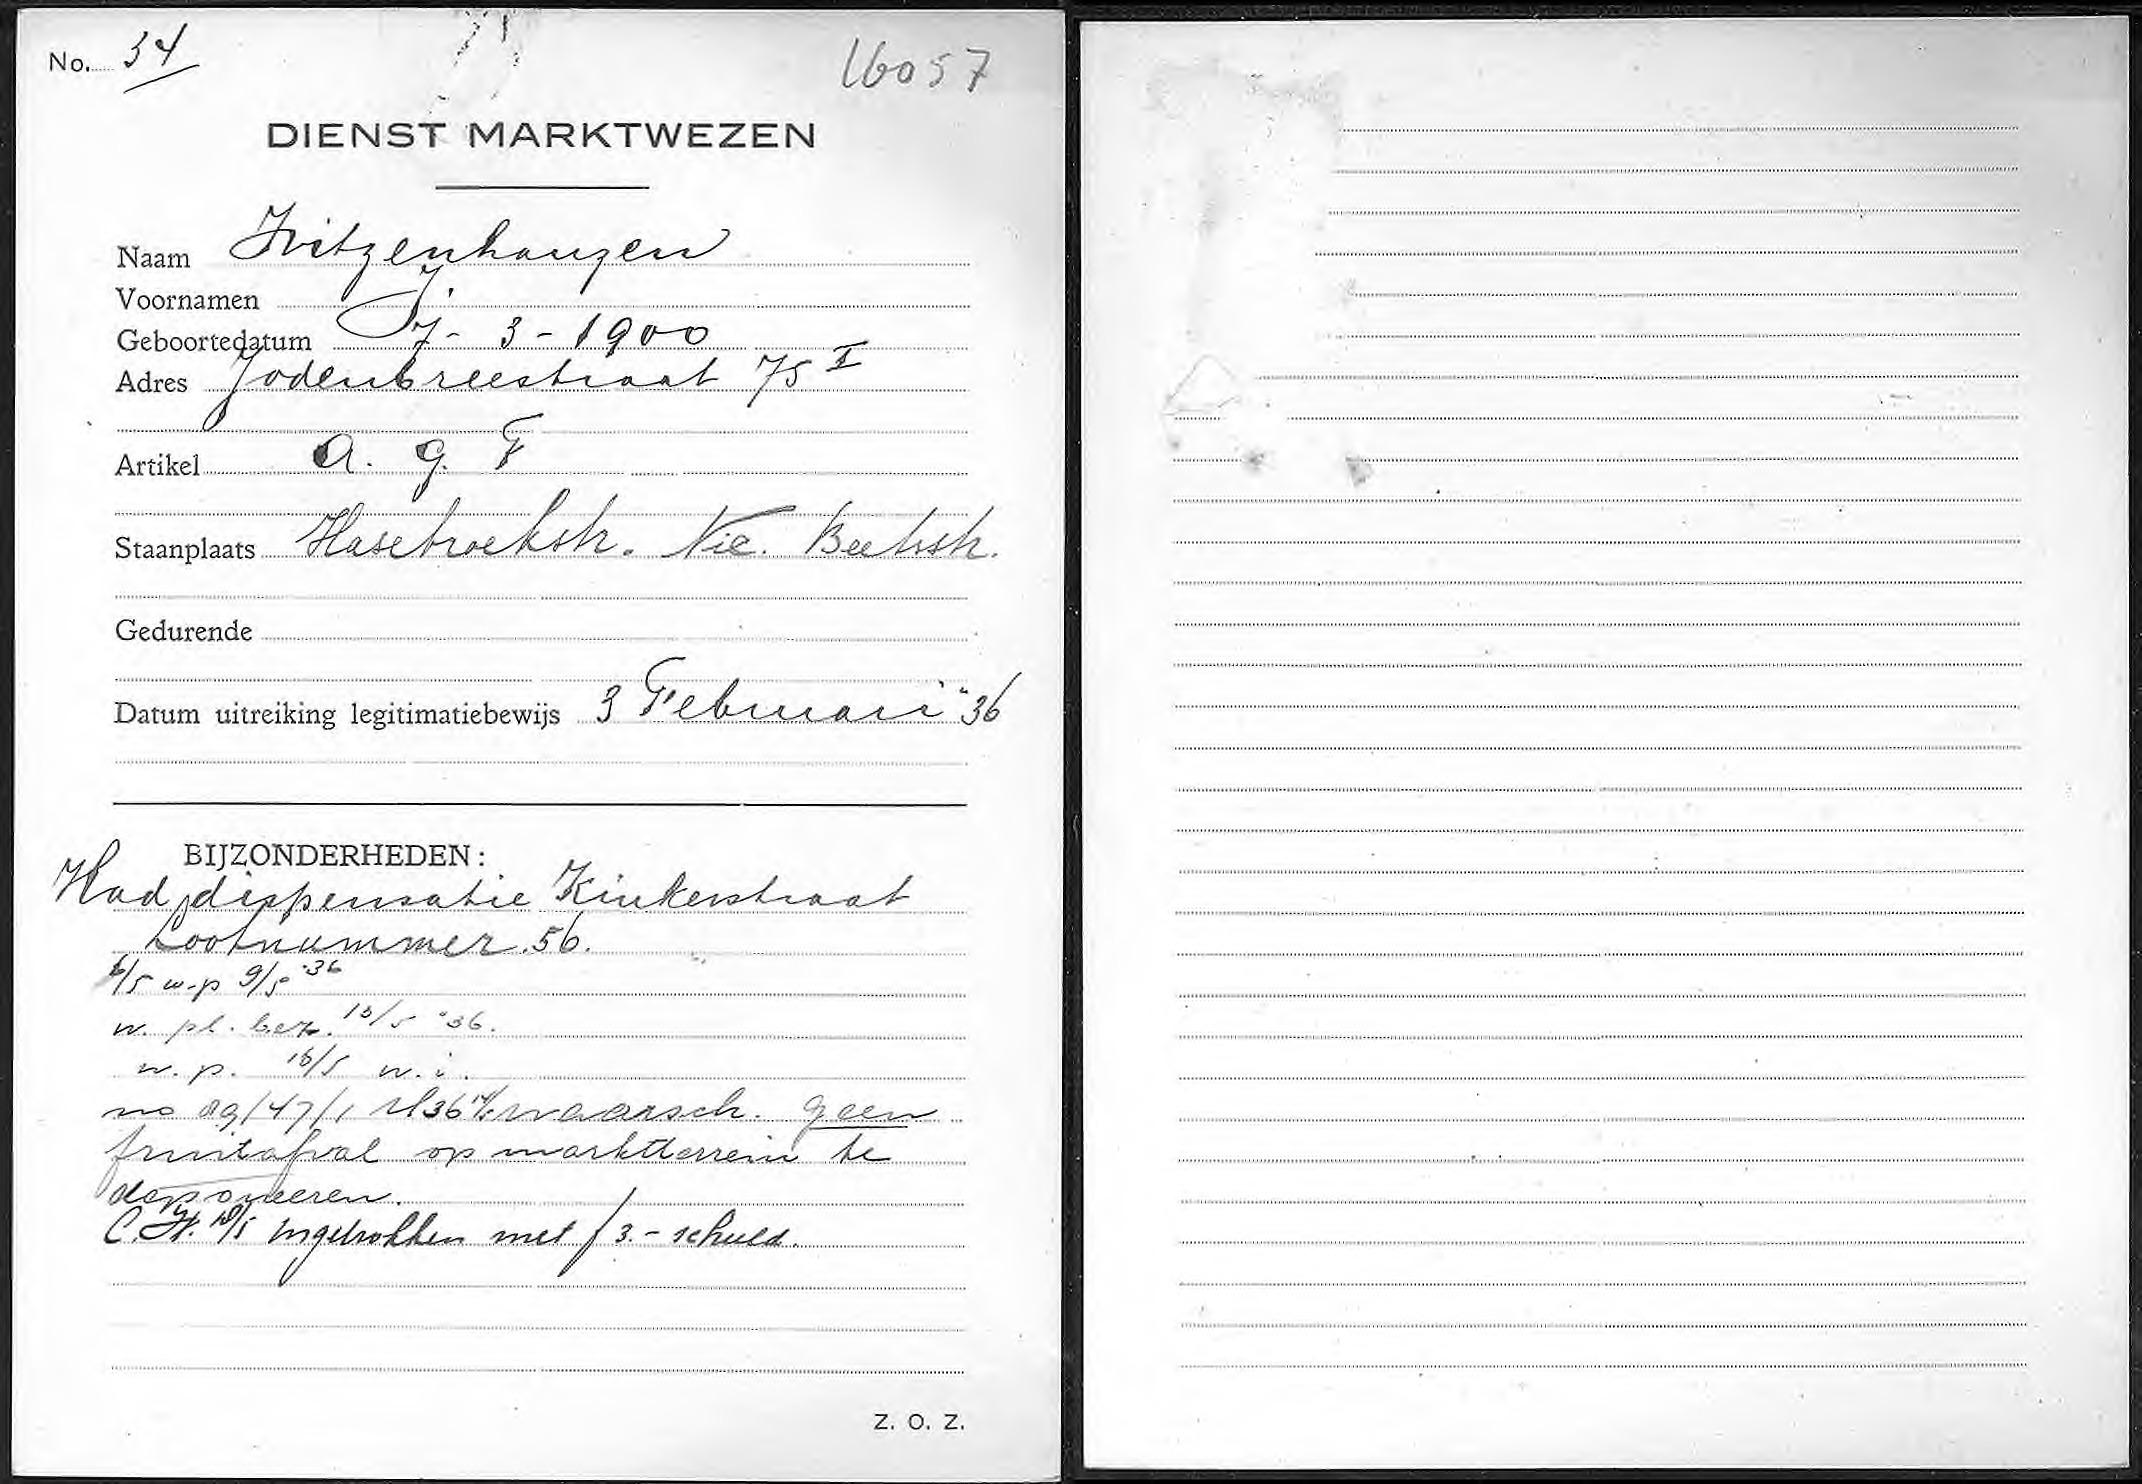 No. 34
16057
DIENST MARKTWEZEN
Naam Witzenhauzen
Voornamen J.
Geboortedatum 7-3-1900
Adres Jodenbreestraat 75 I
Artikel A. G. F
Staanplaats Hasebroekstr. Nic. Beetsstr.
Gedurende
Datum uitreiking legitimatiebewijs 3 Februari "36
BIJZONDERHEDEN:
Had dispensatie Kinkerstraat
Lootnummer 56.
6/5 w-p 9/5 '36
w. pl. bez. 13/5 "36.
w. p. 16/5 w. i.
no 29/47/1 M36 waarsch. geen
fruitafval op marktterrein te
deponeeren.
C.H. 18/5 Ingetrokken met f 3.- schuld.
Z. O. Z.